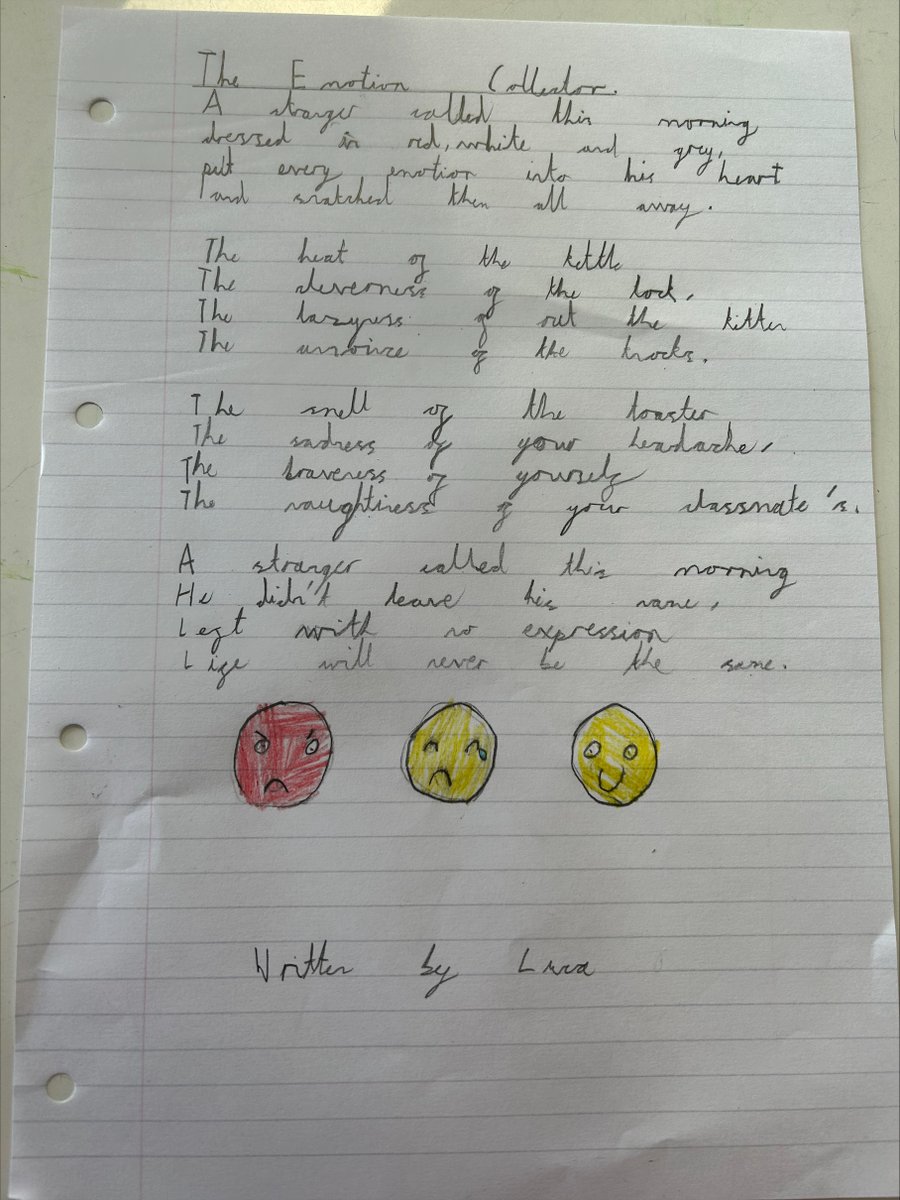 The Emotion Collector.
A stranger called this morning
dressed in red, white and grey,
put every emotion into his heart
and snatched them all away.
The heat of the kettle
The cleverness of the lock,
The lazyness of out the kitten
The of the
The smell of the toaster
The sadness of your headache,
The braveness of yourself
The naughtiness of your classmate's.
A stranger called this morning
He didn't leave his name,
Left with no expression
Life will never be the same.
Written by Luca